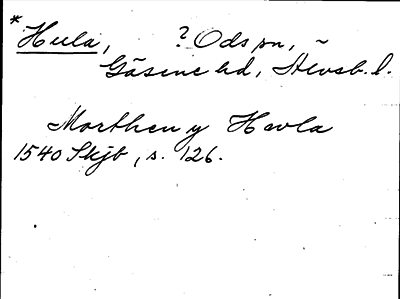 *Hula, ? Ods pn, ~
Gäsene hd, Älvsb. l.
Morthen y Hovla
1540 Skjb, s. 126.